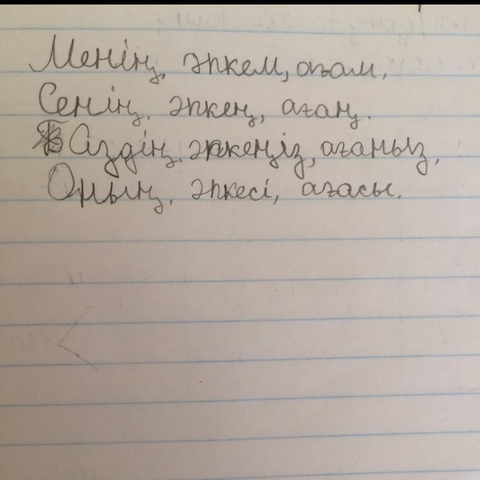 Менің, әпкем, ағам.
Сенің. әпкең, ағаң.
Сіздің. әпкеңіз, ағаңыз,
Оның. әпкесі, ағасы.